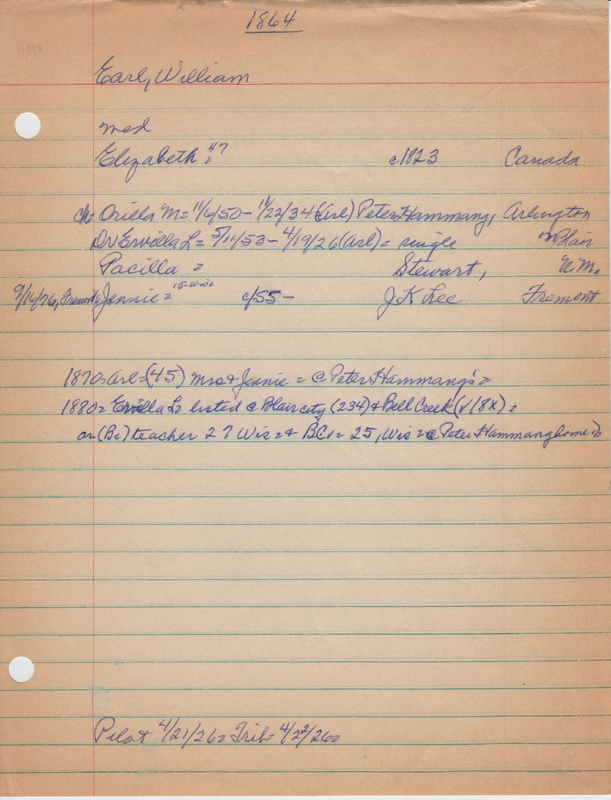 1864
Earl, William
med
Elizabeth = 47 c1823 Canada
ch: Orilla M = 11/6/50 - 11/22/34 (Arl) Peter Hammang, Arlington
Dr Ervilla L = 5/11/53 - 4/19/26 (Arl) = single Blair
Pacilla = Stewart, N.M.
9/16/76, Fremont Jennie = 15-Wis= c/55- J K Lee Fremont
1870= Arl = (45) Mrs & Jennie = @ Peter Hammang's =
1880= Ervilla L= listed @ Blair city (234) & Bell Creek (18x) =
or (Bc) teacher 27 Wis = & BC = 25, Wis = @ Peter Hammang home
Pilot 4/21/26= Trib= 4/22/26=